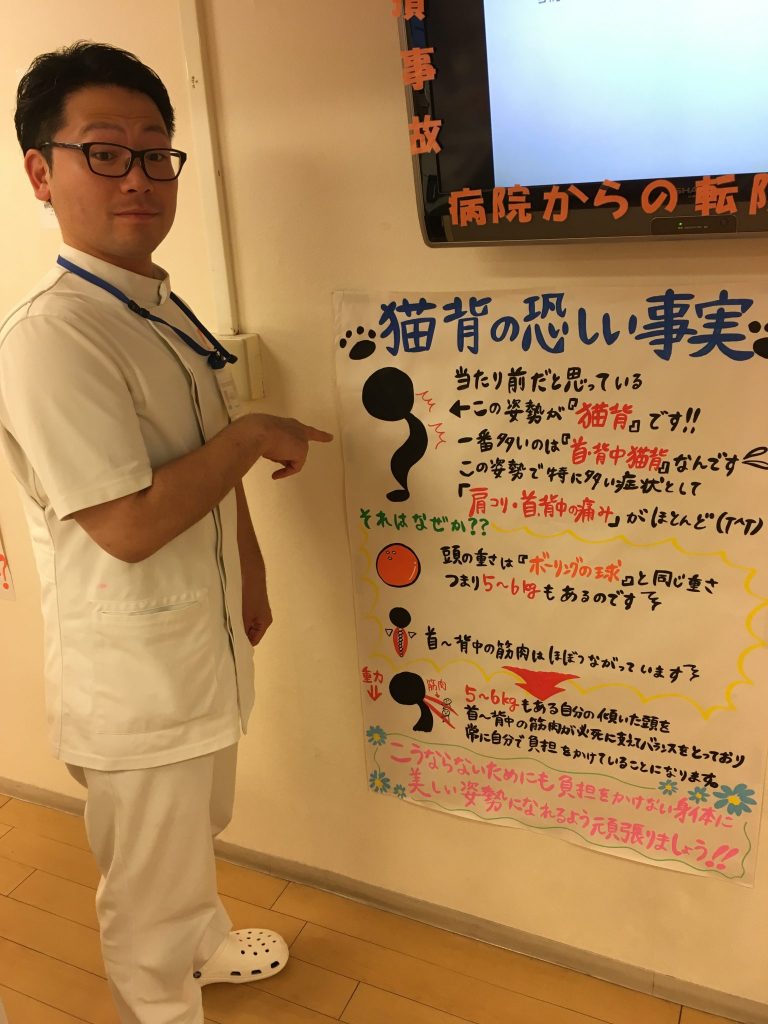 事故
病院からの転
SHA
猫背の恐しい事実
当たり前だと思っている
←この姿勢が『猫背』です!!
一番多いのは『首・背中猫背』なんです
この姿勢で特に多い症状として
「肩コリ・首、背中の痛み」がほとんど(T^T)
それはなぜか??
頭の重さは『ボーリングの球』と同じ重さ
つまり5〜6kgもあるのです
首〜背中の筋肉はほぼつながっています
重力
筋肉
5〜6kgもある自分の傾いた頭を
首〜背中の筋肉が必死に支えてバランスをとっており
常に自分で負担をかけていることになります。
こうならないためにも負担をかけない身体に
美しい姿勢になれるよう頑張りましょう!!